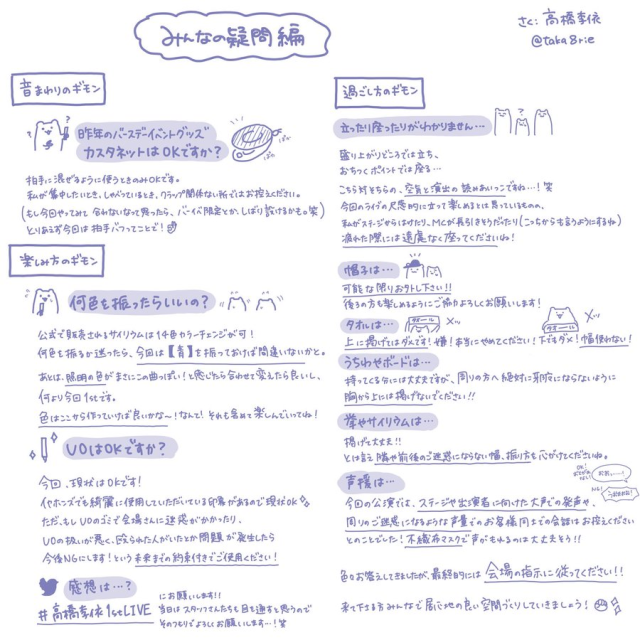 みんなの疑問編
さく: 高橋李依
@taka8rie
音まわりのギモン
昨年のバースデイベントグッズ
カスタネットはOKですか?
拍手に混ぜるように使うときのみOKです。
私が集中したいとき、しゃべっているとき、クラップ関係ない所ではお控えください。
(もし今回やってみて合わないなって思ったら、バーイベ限定とか、しばり設けるかも。笑)
とりあえず今回は拍手バフってことで!
楽しみ方のギモン
何色を振ったらいいの?
公式で販売されるサイリウムは14色カラーチェンジが可!
何色を振るか迷ったら、今回は【青】を振っておけば間違いないかと。
あとは、照明の色がまさにこの曲っぽい!と感じたら合わせて変えたら良いし、
何より今回1stです。
色はここから作っていけば良いかな〜!なんて!それも含めて楽しんでいってね!
UOはOKですか?
今回、現状はOKです!
イヤホンズでも綺麗に使用していただいている印象があるので現状OK
ただ、もしUOのゴミで会場さんに迷惑がかかったり、
UOの扱いが悪く、殴られたんがいたとか問題が発生したら
今後NGにします!という未来までの約束付きでご使用ください!
感想は…?
#高橋李依1stLIVE
にお願いします!!
当日はスタッフさんたちも目を通すと思うので
そのつもりでよろしくお願いします…!笑
過ごし方のギモン
立ったり座ったりがわかりません…
盛り上がりどころでは立ち、
おちつくポイントでは座る…
こちら対そちらの、空気と演出の読みあいっこですね…!笑
今回のライブの尺感的に立って楽しめるとは思っているものの、
私がステージからはけたり、MCが長引きそうだったり(こっちからも言うようにするね)
疲れた際には遠慮なく座ってくださいね!
帽子は…
可能な限りお外し下さい!!
後ろの方も楽しめるようにご協力よろしくお願いします!
タオルは…
タオル
タオル
上に掲げてはダメです!嫌!本当にやめてください!下でもダメ!幅使わない!
うちわやボードは…
持ってくる分には大丈夫ですが、周りの方へ絶対に邪魔にならないように
胸から上には掲げないでください!!
拳やサイリウムは…
掲げて大丈夫!!
とは言え隣や前後のご迷惑にならない幅、振り方も心がけてくださいね。
声援は…
今回の公演では、ステージや出演者に向けた大声での発声や、
周りのご迷惑になるような声量でのお客様同士での会話はお控えください
とのことでした!不織布マスクで声がもれるのは大丈夫そう!!
色々お答えしてきましたが、最終的には会場の指示に従ってください!!
来て下さる方みんなで居心地の良い空間づくりしていきましょう!